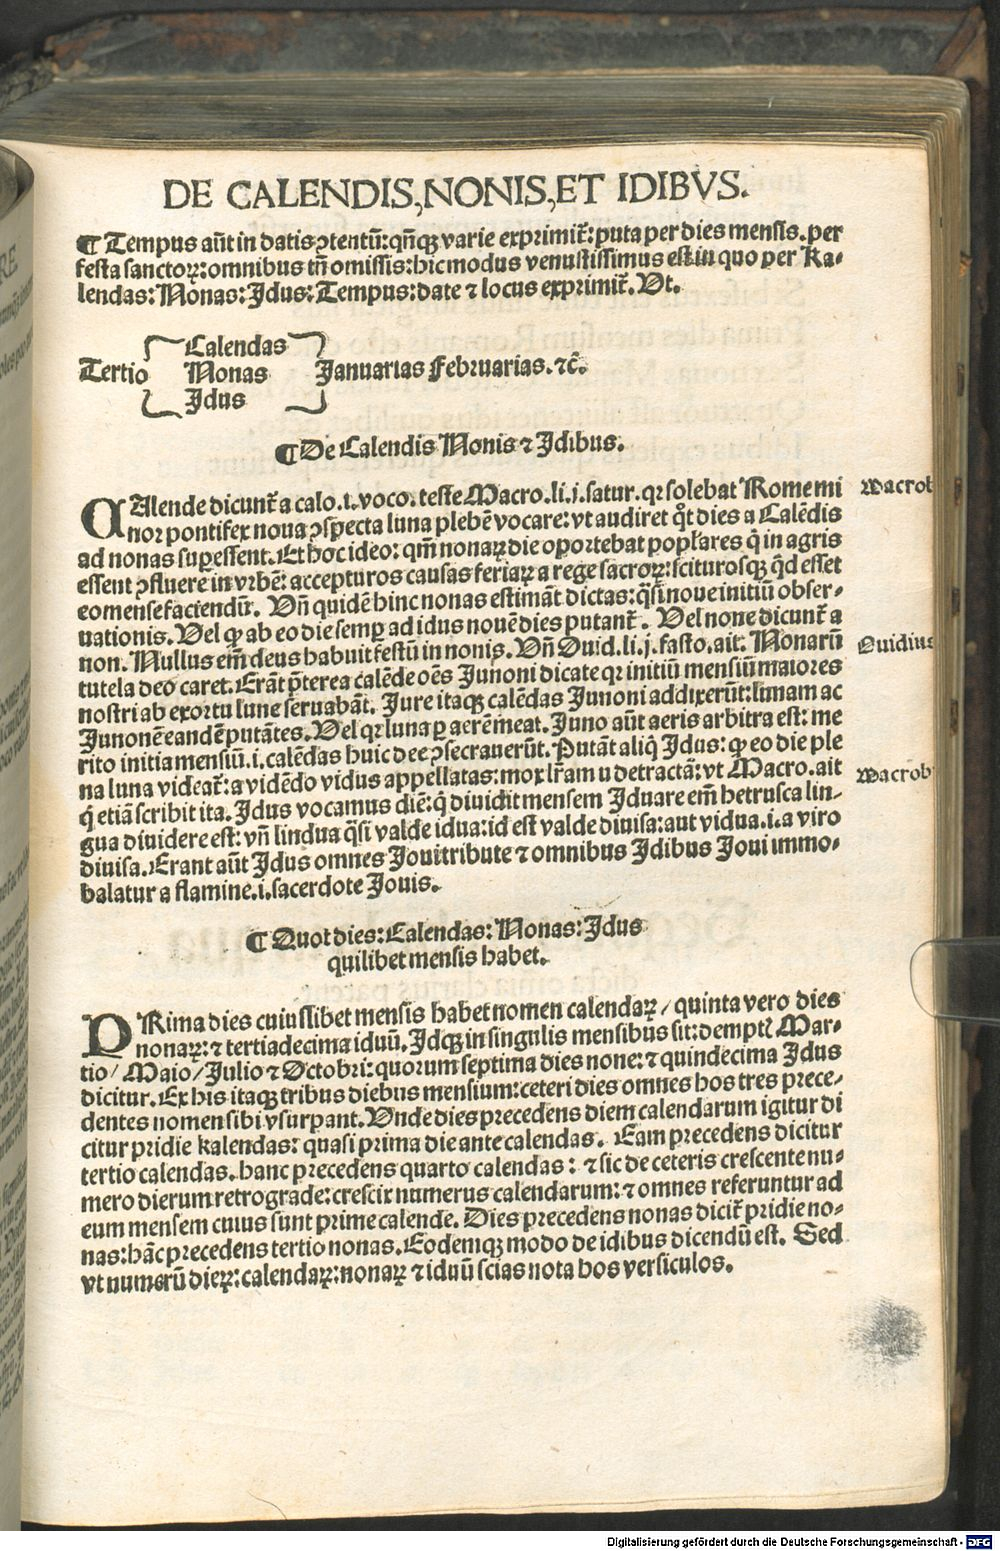 DE CALENDIS, NONIS, ET IDIBVS.
¶ Tempus aūt in datis ꝯtentū: qñꝗ varie exprimit̄: puta per dies mensis. per
festa sanctoꝝ: omnibus tñ omissis: hic modus venustissimus est in quo per Ka-
lendas: Nonas: Idus: Tempus: date ⁊ locus exprimit̄. Vt.
Calendas
Tertio Nonas Januarias Februarias. ⁊c̄.
Idus
¶ De Calendis Nonis ⁊ Idibus.
CAlende dicunt̄ a calo .i. voco. teste Macro. li. j. satur. qꝛ solebat Rome mi
nor pontifex noua ꝯspecta luna plebē vocare: vt audiret qͦt dies a Calēdis
ad nonas suꝑessent. Et hoc ideo: qm̄ nonaꝝ die oportebat popl̄ares q̄ in agris
essent ꝯfluere in vrbē: accepturos causas feriaꝝ a rege sacroꝝ: sciturosqꝫ qd̄ esset
eo mense faciendū. Vñ quidē hinc nonas estimāt dictas: q̄si noue initiū obser-
uationis. Vel ꝙ ab eo die semꝑ ad idus nouē dies putant̄. Vel none dicunt̄ a
non. Nullus em̄ deus habuit festū in nonis. Vñ Ouid. li. j. fasto. ait. Nonarū
tutela deo caret. Erāt p̄terea calēde oēs Junoni dicate qꝛ initiū mensiū maiores
nostri ab exortu lune seruabāt. Jure itaqꝫ calēdas Junoni addixerūt: lunam ac
Junonē eandē putātes. Vel qꝛ luna ꝑ aerē meat. Juno aūt aeris arbitra est: me
rito initia mensiū .i. calēdas huic dee ꝯsecrauerūt. Putāt aliq̄ Idus: ꝙ eo die ple
na luna videat̄: a vidēdo vidus appellatas: mox lr̄am u detractā: vt Macro. ait
q̄ etiā scribit ita. Idus vocamus diē: q̄ diuidit mensem Iduare em̄ hetrusca lin-
gua diuidere est: vñ lindua q̄si valde idua: id est valde diuisa: aut vidua .i. a viro
diuisa. Erant aūt Idus omnes Joui tribute ⁊ omnibus Idibus Joui immo-
balatur a flamine .i. sacerdote Jouis.
Macrob
Ouidius
Macrob
¶ Quot dies: Calendas: Nonas: Idus
quilibet mensis habet.
PRima dies cuiuslibet mensis habet nomen calendaꝝ / quinta vero dies
nonaꝝ: ⁊ tertiadecima iduū. Idqꝫ in singulis mensibus sit: demptꝭ Mar-
tio / Maio / Julio ⁊ Octobri: quorum septima dies none: ⁊ quindecima Idus
dicitur. Ex his itaqꝫ tribus diebus mensium: ceteri dies omnes hos tres prece-
dentes nomen sibi vsurpant. Vnde dies precedens diem calendarum igitur di
citur pridie kalendas: quasi prima die ante calendas. Eam precedens dicitur
tertio calendas. hanc precedens quarto calendas: ⁊ sic de ceteris crescente nu-
mero dierum retrograde: crescit numerus calendarum: ⁊ omnes referuntur ad
eum mensem cuius sunt prime calende. Dies precedens nonas dicit̄ pridie no-
nas: hāc precedens tertio nonas. Eodemqꝫ modo de idibus dicendū est. Sed
vt numerū dieꝝ: calendaꝝ: nonaꝝ ⁊ iduū scias nota hos versiculos.
Digitalisierung gefördert durch die Deutsche Forschungsgemeinschaft - DFG